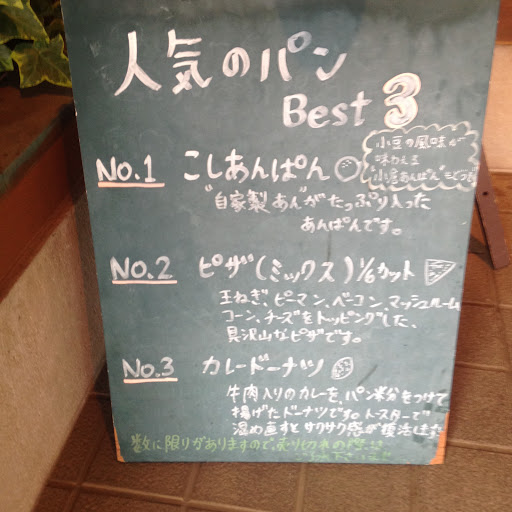 人気のパン
Best 3
No.1 こしあんぱん
小豆の風味が
味わえる
"小倉あんぱん"もどうぞ
"自家製あん"がたっぷり入った
あんぱんです。
No.2 ピザ(ミックス)1/6カット
玉ねぎ、ピーマン、ベーコン、マッシュルーム
コーン、チーズをトッピングした、
具沢山なピザです。
No.3 カレードーナツ
牛肉入りのカレーを、パン粉をつけて
揚げたドーナツです。トースターで
温め直すとサクサク感が復活します
数に限りがありますので、売り切れの際は